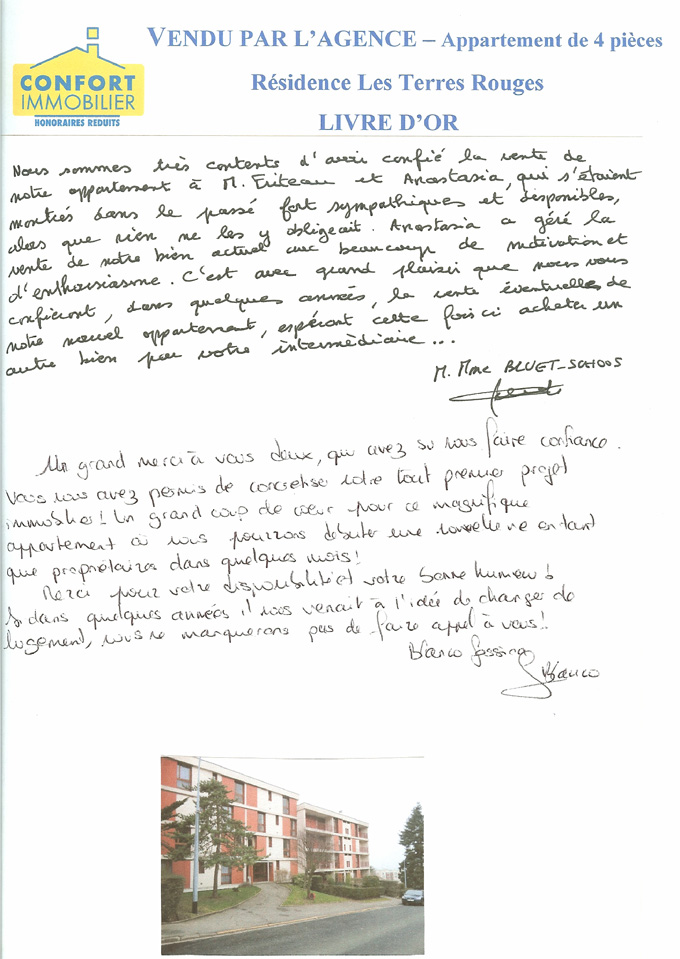 VENDU PAR L'AGENCE – Appartement de 4 pièces
Résidence Les Terres Rouges
LIVRE D'OR
CONFORT
IMMOBILIER
HONORAIRES REDUITS
Nous sommes très contents d'avoir confié la vente de
notre appartement à M. Friteau et Anastasia, qui s'étaient
montrés dans le passé fort sympathiques et disponibles,
alors que rien ne les y obligeait. Anastasia a géré la
vente de notre bien actuel avec beaucoup de motivation et
d'enthousiasme. C'est avec grand plaisir que nous vous
confieront, dans quelques années, la vente éventuelle de
notre nouvel appartement, espérant cette fois ci acheter un
autre bien par votre intermédiaire...
M. Mme BLUET-SCHOOS
Un grand merci à vous deux, qui avez su nous faire confiance.
Vous nous avez permis de concrétiser notre tout premier projet
immobilier! Un grand coup de cœur pour ce magnifique
appartement où nous pourrons débuter une nouvelle vie en tant
que propriétaires dans quelques mois!
Merci pour votre disponibilité et votre bonne humeur!
Si dans quelques années il nous venait à l'idée de changer de
logement, nous ne manquerons pas de faire appel à vous!!
Blanco
Blanco